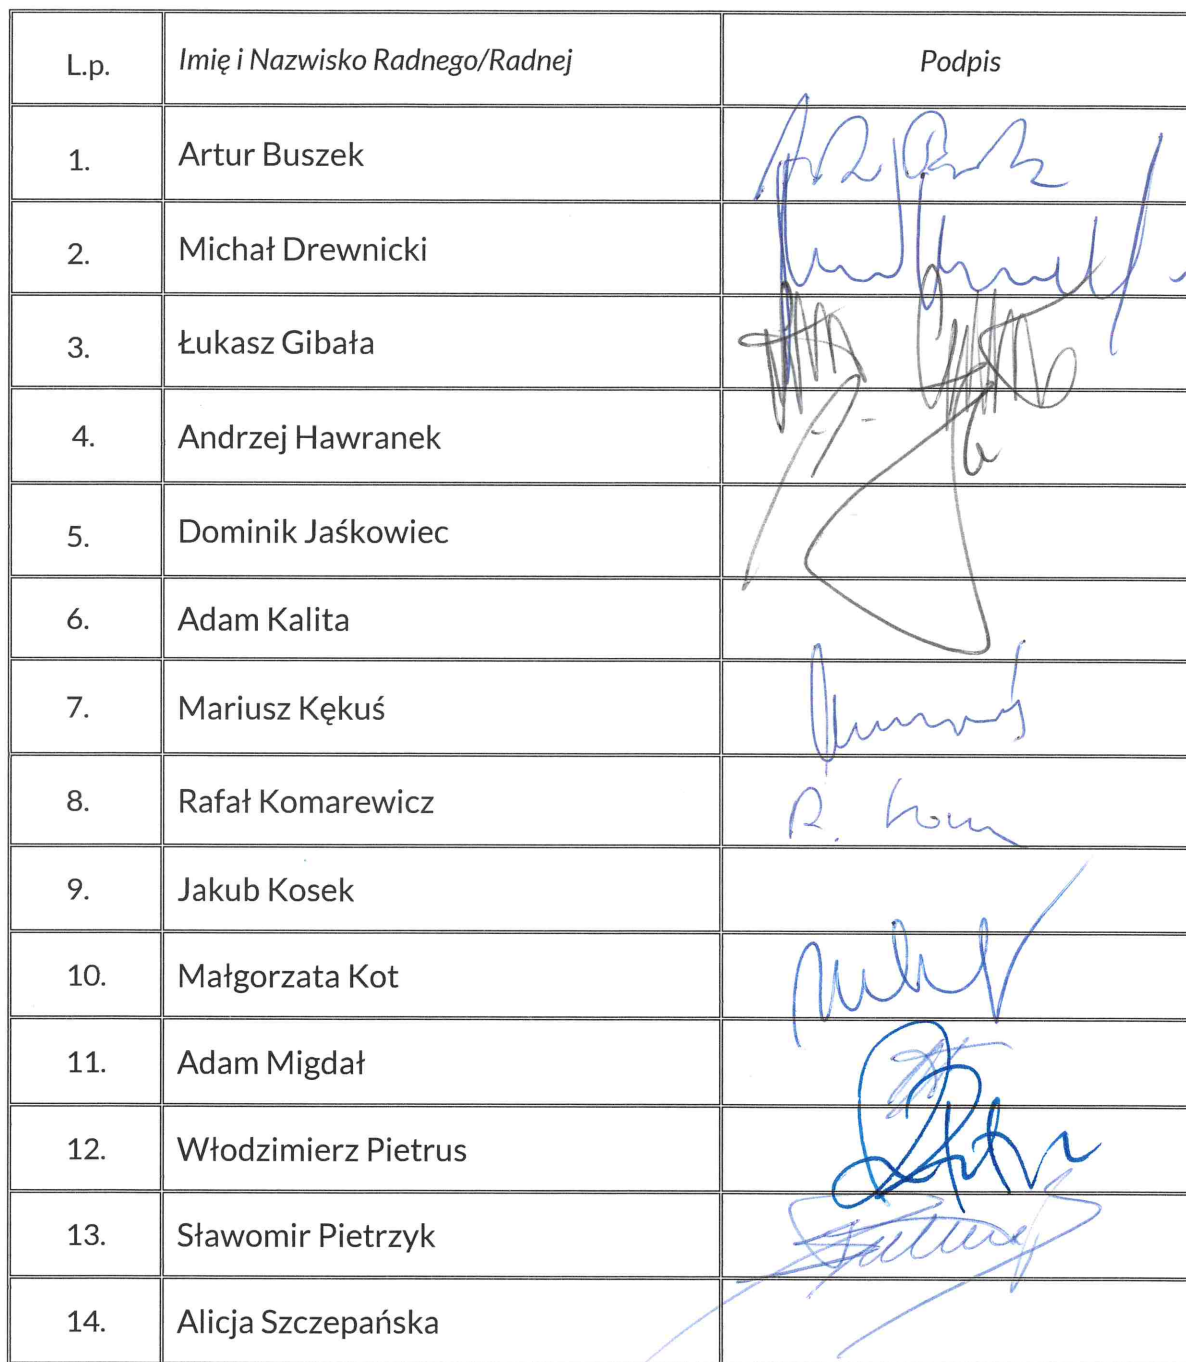 L.p. Imię i Nazwisko Radnego/Radnej Podpis
1. Artur Buszek
2. Michał Drewnicki
3. Łukasz Gibała
4. Andrzej Hawranek
5. Dominik Jaśkowiec
6. Adam Kalita
7. Mariusz Kękuś
8. Rafał Komarewicz R.
9. Jakub Kosek
10. Małgorzata Kot
11. Adam Migdał
12. Włodzimierz Pietrus
13. Sławomir Pietrzyk
14. Alicja Szczepańska